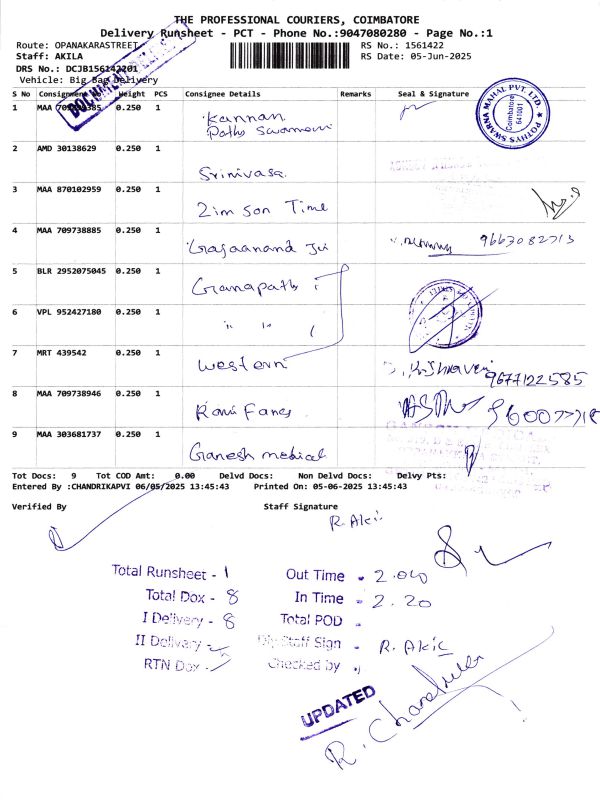 THE PROFESSIONAL COURIERS, COIMBATORE
Delivery Runsheet - PCT - Phone No.:9047080280 - Page No.:1
Route: OPANAKARASTREET
RS No.: 1561422
Staff: AKILA
RS Date: 05-Jun-2025
DRS No.: DCJB156142201
Vehicle: Big Bag Delivery
S No Consignment Weight PCS Consignee Details Remarks Seal & Signature
1 MAA 0.250 1 Kannan
Pothy Swamom
POTHYS SWARNA MAHAL PVT. LTD.
Coimbatore
641001
2 AMD 30138629 0.250 1 Srinivasa
3 MAA 870102959 0.250 1 Zimson Time
4 MAA 709738885 0.250 1 Gajaanand 9663082713
5 BLR 2952075045 0.250 1 Ganapathi
6 VPL 952427180 0.250 1 " "
7 MRT 439542 0.250 1 Western 9677122585
8 MAA 709738946 0.250 1 Rani Fancy
9 MAA 303681737 0.250 1 Ganesh medical
Tot Docs: 9 Tot COD Amt: 0.00 Delvd Docs: Non Delvd Docs: Delvy Pts:
Entered By :CHANDRIKAPVI 06/05/2025 13:45:43 Printed On: 05-06-2025 13:45:43
Verified By Staff Signature
R. Akil
Total Runsheet - 1 Out Time - 2.00
Total Dox - 8 In Time - 2.20
I Delivery - 8 Total POD -
II Delivery - Dly.Staff Sign - R. Akil
RTN Dox - Checked by -
UPDATED
R. Chandrika